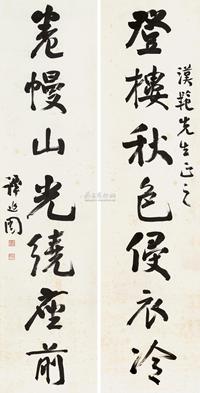 登樓秋色侵衣冷
漢範先生正之
卷幔山光繞座前
譚延闓